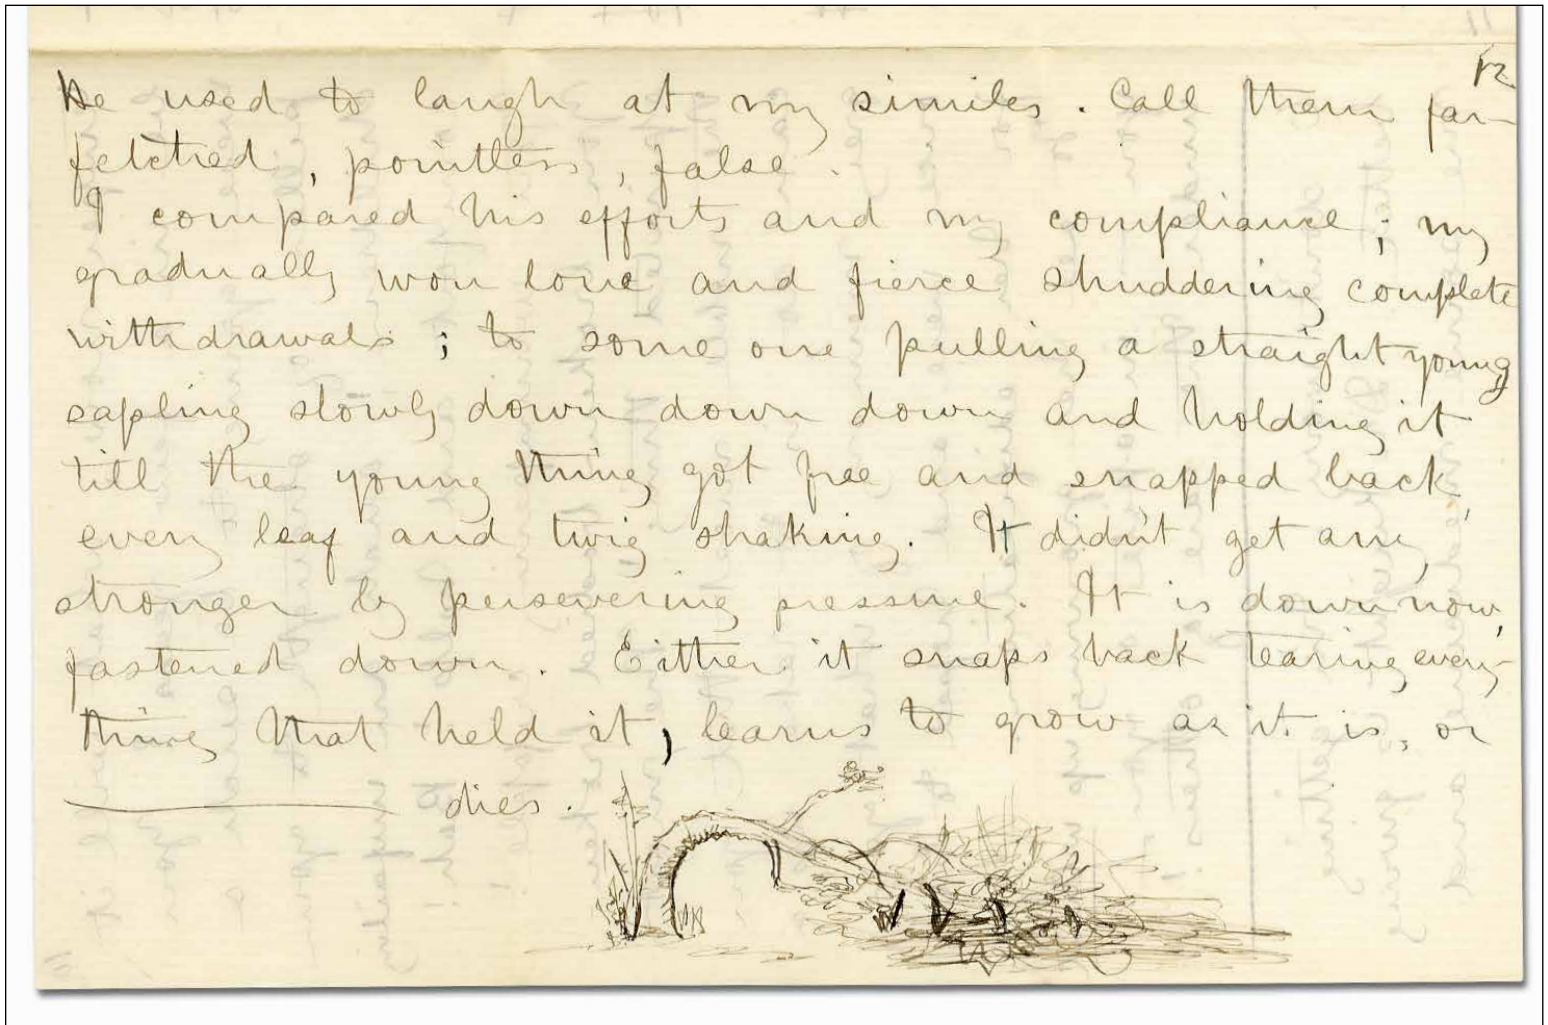 12
He used to laugh at my similes. Call them far-
fetched, pointless, false.
I compared his efforts and my compliance; my
gradually won love and fierce shuddering complete
withdrawals; to some one pulling a straight young
sapling slowly down down down and holding it
till the young thing got free and snapped back,
every leaf and twig shaking. It didn't get any
stronger by persevering pressure. It is down now,
fastened down. Either it snaps back tearing every-
thing that held it, learns to grow as it is, or
dies.